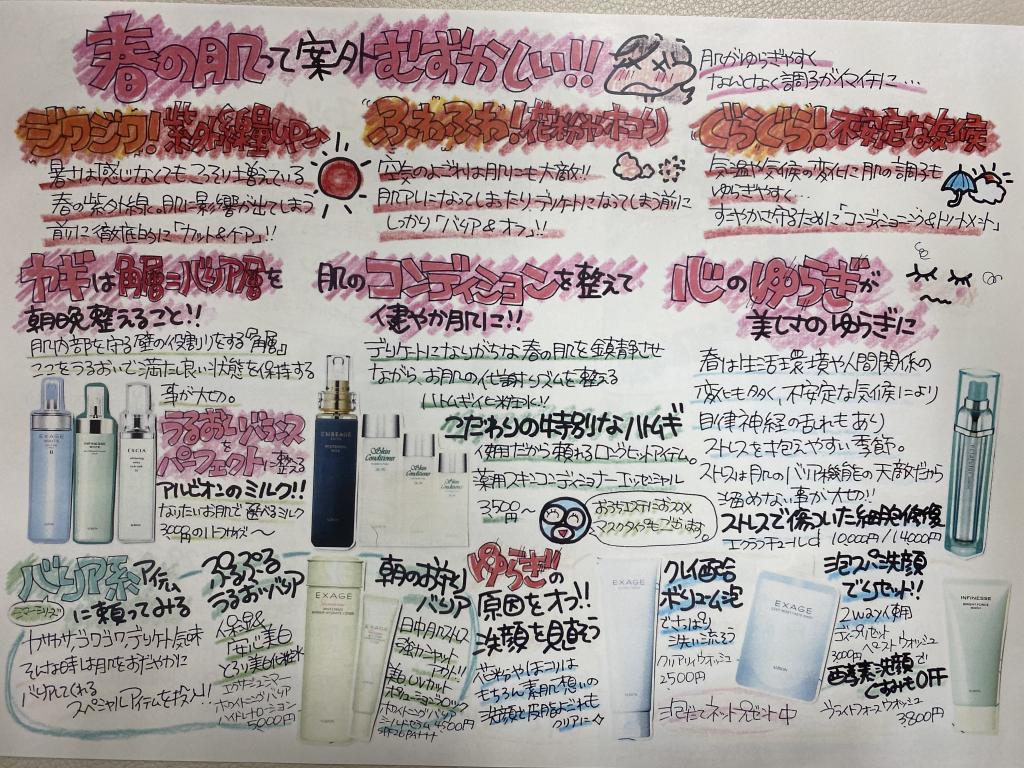 春の肌って案外むずかしい!!
肌がゆらぎやすく
なんとなく調子がイマイチに…
ジワジワ!紫外線量UP
暑さは感じなくてもこっそり増えている
春の紫外線。肌に影響が出てしまう
前に徹底的に「カット&ケア」!!
ふわふわ!花粉やホコリ
空気のよごれは肌にも大敵!!
肌アレになってしまったり、デリケートになってしまう前に
しっかり「バリア&オフ」!!
ぐらぐら!不安定な気候
気温や気候の変化に肌の調子も
ゆらぎやすく…
すこやかさ守るために「コンディショニング&トリートメント」
カギは角層=バリア層を
朝晩整えること!!
肌内部を守る壁の役割りをする『角層』
ここをうるおいで満たし良い状態を保持する
事が大切。
うるおいバランス
を
パーフェクトに整える
アルビオンのミルク!!
なりたいお肌で選べるミルク
肌のコンディションを整えて
健やか肌に!!
デリケートになりがちな春の肌を鎮静させ
ながら、お肌の代謝リズムを整える
ハトムギ化粧水!!
こだわりの特別なハトムギ
使用だから頼れるロングヒットアイテム。
薬用スキンコンディショナーエッセンシャル
3500円~
おうちエステにおススメ
マスクタイプもございます。
心のゆらぎが
美しさのゆらぎに
春は生活環境や人間関係の
変化も多く、不安定な気候により
自律神経の乱れもあり
ストレスを抱えやすい季節。
ストレスは肌のバリア機能の天敵だから
溜めない事が大切!!
ストレスで傷ついた細胞修復
エクラフチュールd 10000円/14000円
バリア系アイテム
に頼ってみる
サマーシリーズ
カサカサ、ゴワゴワ、デリケート気味
そんな時は肌をおだやかに
バリアしてくれる
スペシャルアイテムを投入!!
ぷるぷる
うるおいバリア
保湿&
安心美白
とろり美白化粧水
エクサージュシマー
ホワイトニングバリア
ハイドレートローション
5000円
朝のお守り
バリア
日中用ミルク
ホワイトニングバリア
4500円
ゆらぎの
原因をオフ!!
洗顔を見直そう
花粉やホコリは
もちろん素肌想いの
洗顔で皮脂よごれも
クリアに
クレイ配合
ボリューム泡
でさっぱり
洗い流そう
クリアリィウォッシュ
2500円
泡だてネットプレゼント中
泡スパ洗顔
でリセット!!
2way使用
3000円
酵素洗顔で
くすみもOFF
ブライトフォースウォッシュ
3800円
EXAGE
WHITE
INFINESSE
WHITE
EXCIA
EMBEAGE
Skin
Conditioner
Skin
Conditioner
Skin
Conditioner
EXAGE
ALBION
EXAGE
ALBION
EXAGE
ALBION
INFINESSE
BRIGHT FORCE
WASH
ALBION